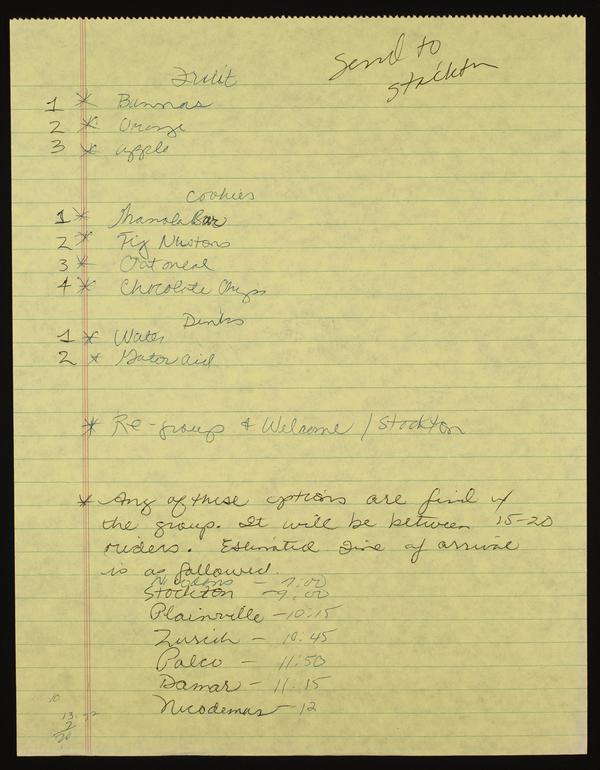 Send to
Stockton
Fruit
1 * Bannnas
2 * Orange
3 * apple
Cookies
1 * Granola Bar
2 * Fig Nustons
3 * Oatmeal
4 * Chocolate Chips
Drinks
1 * Water
2 * Gator aid
* Re-group & Welcome / Stockton
* Any of these options are find w/
the group. It will be between 15-20
riders. Estimated time of arrival
is as followed.
- 7:00
Stockton - 9:00
Plainville - 10:15
Zurich - 10:45
Palco - 11:50
Damar - 11:15
Nicodemus - 12
10
13
2
20